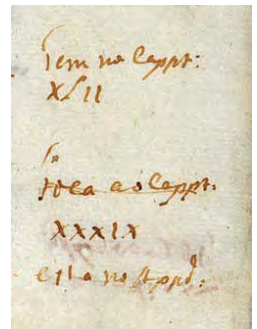 Tem no Cappt:
XLII
so
toca ao Cappt.
XXXIX
esta no